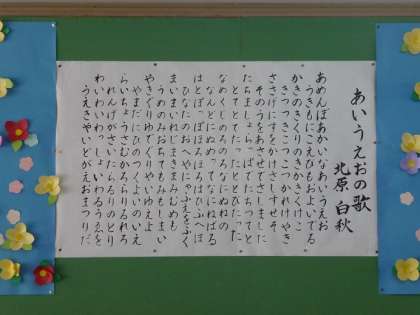 あいうえおの歌
北原 白秋
あめんぼあかいなあいうえお
うきもにこえびもおよいでる
かきのきくりのきかきくけこ
きつつきこつこつかれけやき
ささげにすをかけさしすせそ
そのうをあさせでさしました
たちましょらっぱでたちつてと
とてとてたったととびたった
なめくじのろのろなにぬねの
なんどにぬめってなにねばる
はとぽっぽほろほろはひふへほ
ひなたのおへやにゃふえをふく
まいまいねじまきまみむめも
うめのみおちてもみもしまい
やきぐりゆでぐりやいゆえよ
やまだにひのつくよいのいえ
らいちょうさむかろらりるれろ
れんげがさいたらるりのとり
わいわいわっしょいわゐうゑを
うえきやいどがえおまつりだ